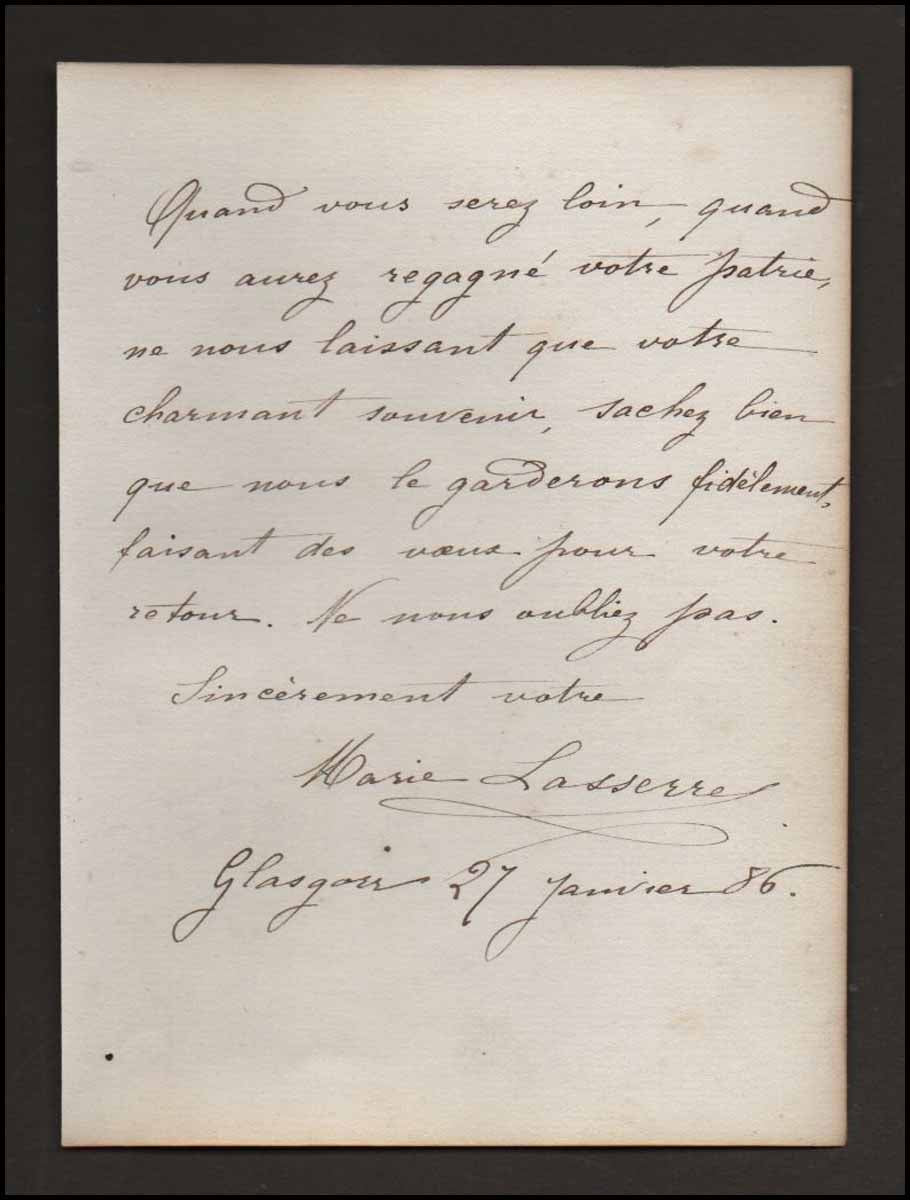 Quand vous serez loin, quand
vous aurez regagné votre patrie,
ne nous laissant que votre
charmant souvenir, sachez bien
que nous le garderons fidèlement,
faisant des vœux pour votre
retour. Ne nous oubliez pas.
Sincèrement votre
Marie Lasserre
Glasgow 27 Janvier 86.